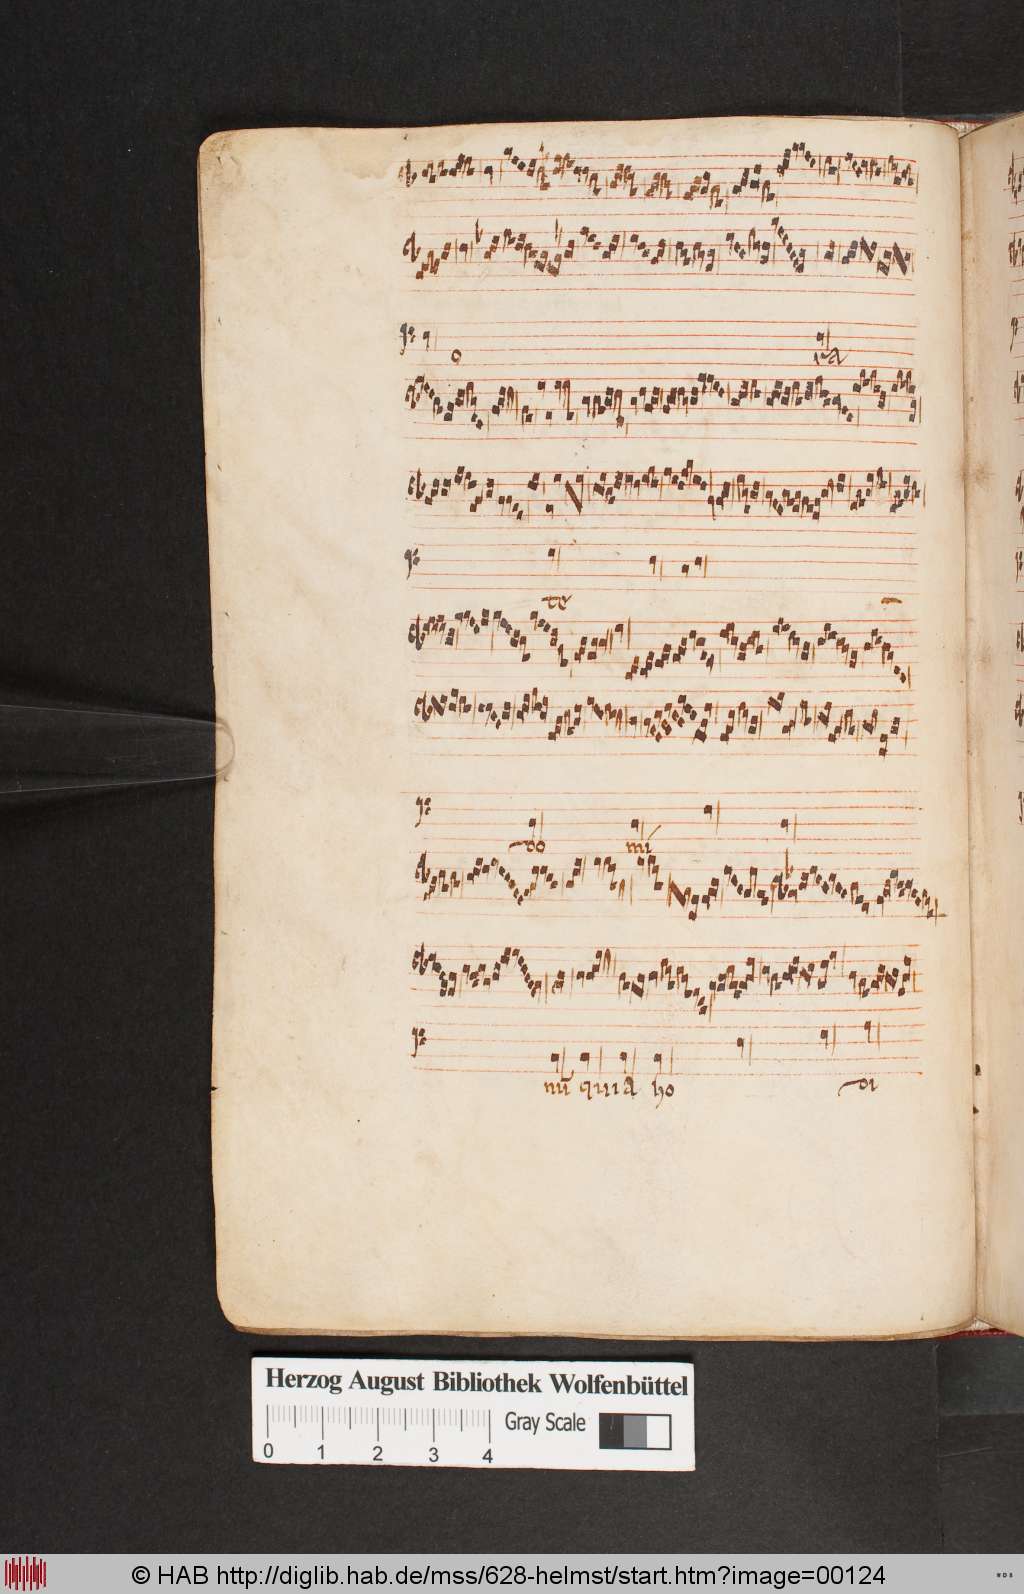 o va
te
do mi
nū quia ho di
Herzog August Bibliothek Wolfenbüttel
Gray Scale
0 1 2 3 4
© HAB http://diglib.hab.de/mss/628-helmst/start.htm?image=00124